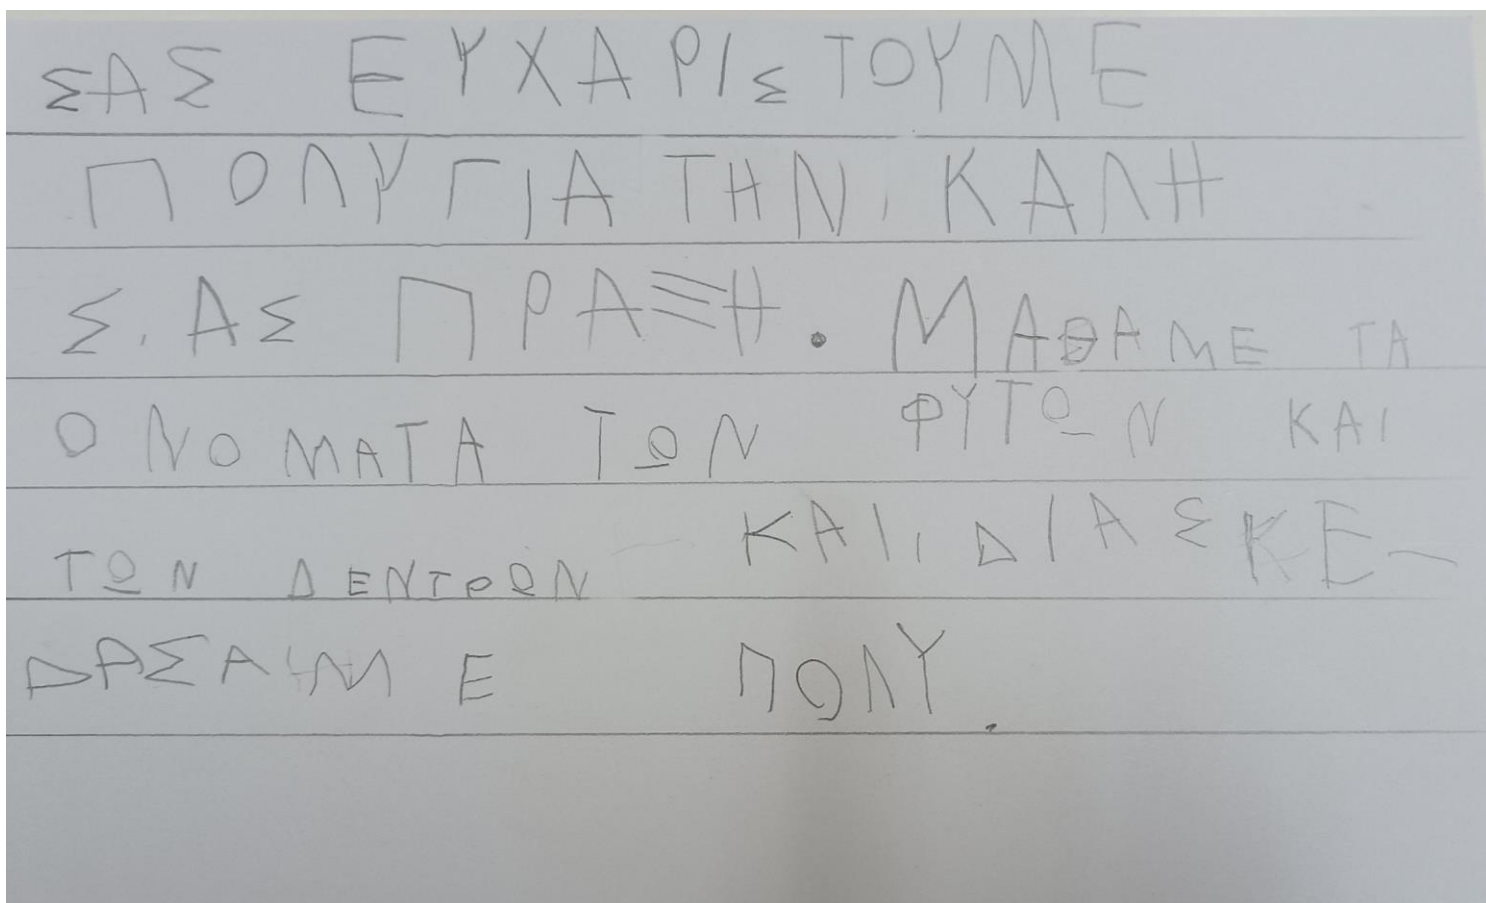 ΣΑΣ ΕΥΧΑΡΙΣΤΟΥΜΕ
ΠΟΛΥ ΓΙΑ ΤΗΝ ΚΑΛΗ
Σ.ΑΣ ΠΡΑΞΗ. ΜΑΘΑΜΕ ΤΑ
ΟΝΟΜΑΤΑ ΤΩΝ ΦΥΤΩΝ ΚΑΙ
ΤΩΝ ΔΕΝΤΡΩΝ ΚΑΙ, ΔΙΑΣΚΕ-
ΔΑΣΑΜΕ ΠΟΛΥ.